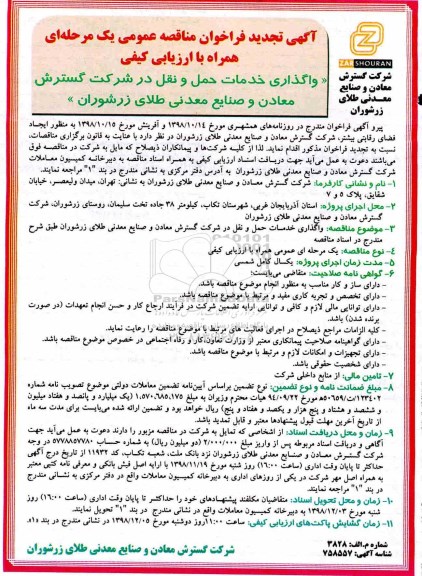 آگهی تجدید فراخوان مناقصه عمومی یک مرحله‌ای
همراه با ارزیابی کیفی
« واگذاری خدمات حمل و نقل در شرکت گسترش
معادن و صنایع معدنی طلای زرشوران »
ZARSHOURAN
شرکت گسترش
معادن و صنایع
معدنی طلای
زرشوران
پیرو آگهی فراخوان مندرج در روزنامه‌های همشهری مورخ ۱۳۹۸/۱۰/۱۴ و آفرینش مورخ ۱۳۹۸/۱۰/۱۵ به منظور ایجاد
فضای رقابتی بیشتر، شرکت گسترش معادن و صنایع معدنی طلای زرشوران در نظر دارد با عنایت به قانون برگزاری مناقصات،
نسبت به تجدید فراخوان مذکور اقدام نماید. لذا از کلیه شرکت‌ها و پیمانکاران ذیصلاح که مایل به شرکت در مناقصه فوق
می‌باشند دعوت به عمل می‌آید جهت دریافت اسناد ارزیابی کیفی به همراه اسناد مناقصه به دبیرخانه کمیسیون معاملات
شرکت گسترش معادن و صنایع معدنی طلای زرشوران به آدرس دفتر مرکزی به نشانی مندرج در بند "۱" مراجعه نمایند.
۱- نام و نشانی کارفرما: شرکت گسترش معادن و صنایع معدنی طلای زرشوران به نشانی: تهران، میدان ولیعصر، خیابان
شقایق، پلاک ۵ و ۷
۲- محل اجرای پروژه: استان آذربایجان غربی، شهرستان تکاب، کیلومتر ۳۸ جاده تخت سلیمان، روستای زرشوران، شرکت
گسترش معادن و صنایع معدنی طلای زرشوران
۳- موضوع مناقصه: واگذاری خدمات حمل و نقل در شرکت گسترش معادن و صنایع معدنی طلای زرشوران طبق شرح
مندرج در اسناد مناقصه
۴- نوع مناقصه: یک مرحله ای عمومی همراه با ارزیابی کیفی
۵- مدت زمان اجرای پروژه: یکسال کامل شمسی
۶- گواهی نامه صلاحیت: متقاضی می‌بایست:
- دارای ساز و کار مناسب به منظور انجام موضوع مناقصه باشد.
- دارای تخصص و تجربه کاری مفید و مرتبط با موضوع مناقصه باشد.
- دارای توانایی مالی لازم و کافی و توانایی ارایه تضمین شرکت در فرآیند ارجاع کار و حسن انجام تعهدات (در صورت
برنده شدن) باشد.
- کلیه الزامات مراجع ذیصلاح در اجرای فعالیت های مرتبط با موضوع مناقصه را رعایت نماید.
- دارای گواهینامه صلاحیت پیمانکاری معتبر از وزارت تعاون،کار و رفاه اجتماعی در خصوص موضوع مناقصه باشد.
- دارای تجهیزات و امکانات لازم و مرتبط با موضوع مناقصه باشد.
- دارای شخصیت حقوقی باشد.
۷- تامین مالی: از منابع داخلی شرکت
۸- مبلغ ضمانت نامه و نوع تضمین: نوع تضمین براساس آیین‌نامه تضمین معاملات دولتی موضوع تصویب نامه شماره
۱۲۳۴۰۲/ت۵۰۶۵۹ه مورخ ۹۴/۰۹/۲۲ هیات محترم وزیران به مبلغ ۱.۵۷۰.۶۸۵.۱۷۵ (یک میلیارد و پانصد و هفتاد میلیون
و ششصد و هشتاد و پنج هزار و یکصد و هفتاد و پنج) ریال خواهد بود و تضمین ارائه شده می‌بایست برای مدت سه ماه
از تاریخ آخرین مهلت قبول پیشنهادها معتبر و قابل تمدید باشد.
۹- زمان و محل دریافت اسناد: از اشخاصی که تمایل به شرکت در مناقصه مزبور را دارند دعوت به عمل می‌آید جهت
آگاهی و دریافت اسناد مربوطه پس از واریز مبلغ ۲/۰۰۰/۰۰۰ (دو میلیون ریال) به شماره حساب ۵۷۷۸۸۵۷۷۸۰ در وجه
شرکت گسترش معادن و صنایع معدنی طلای زرشوران نزد بانک ملت، شعبه تکاب، کد ۱۱۹۳۲ از تاریخ درج آگهی
حداکثر تا پایان وقت اداری (ساعت ۱۶:۰۰) روز شنبه مورخ ۱۳۹۸/۱۱/۱۹ با ارایه اصل فیش بانکی و معرفی نامه کتبی معتبر
به همراه اصل مهر شرکت در یکی از روزهای اداری به دبیرخانه کمیسیون معاملات واقع در دفتر مرکزی به نشانی مندرج
در بند "۱" مراجعه نمایند.
۱۰- زمان و محل تحویل اسناد: متقاضیان مکلفند پیشنهادهای خود را حداکثر تا پایان وقت اداری (ساعت ۱۶:۰۰) روز
شنبه مورخ ۱۳۹۸/۱۲/۰۳ به دبیرخانه کمیسیون معاملات واقع در نشانی مندرج در بند "۱" تحویل نمایند.
۱۱- زمان گشایش پاکت‌های ارزیابی کیفی: ساعت ۱۱:۰۰روز دوشنبه مورخ ۱۳۹۸/۱۲/۰۵ در نشانی مندرج در بند «۱».
شماره م.الف: ۳۸۲۸
شناسه آگهی: ۷۵۸۵۵۷
شرکت گسترش معادن و صنایع معدنی طلای زرشوران